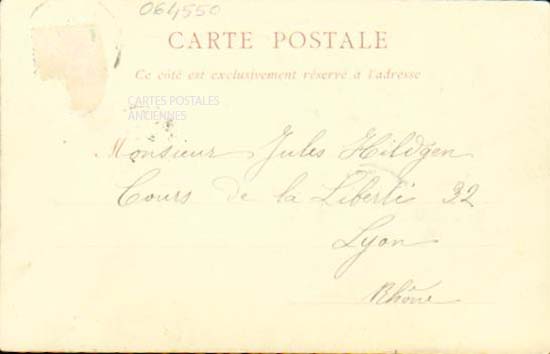 064550
CARTE POSTALE
Ce côté est exclusivement réservé à l'adresse
CARTES POSTALES
ANCIENNES
Monsieur Jules Hildgen
Cours de la Liberté 32
Lyon
Rhône